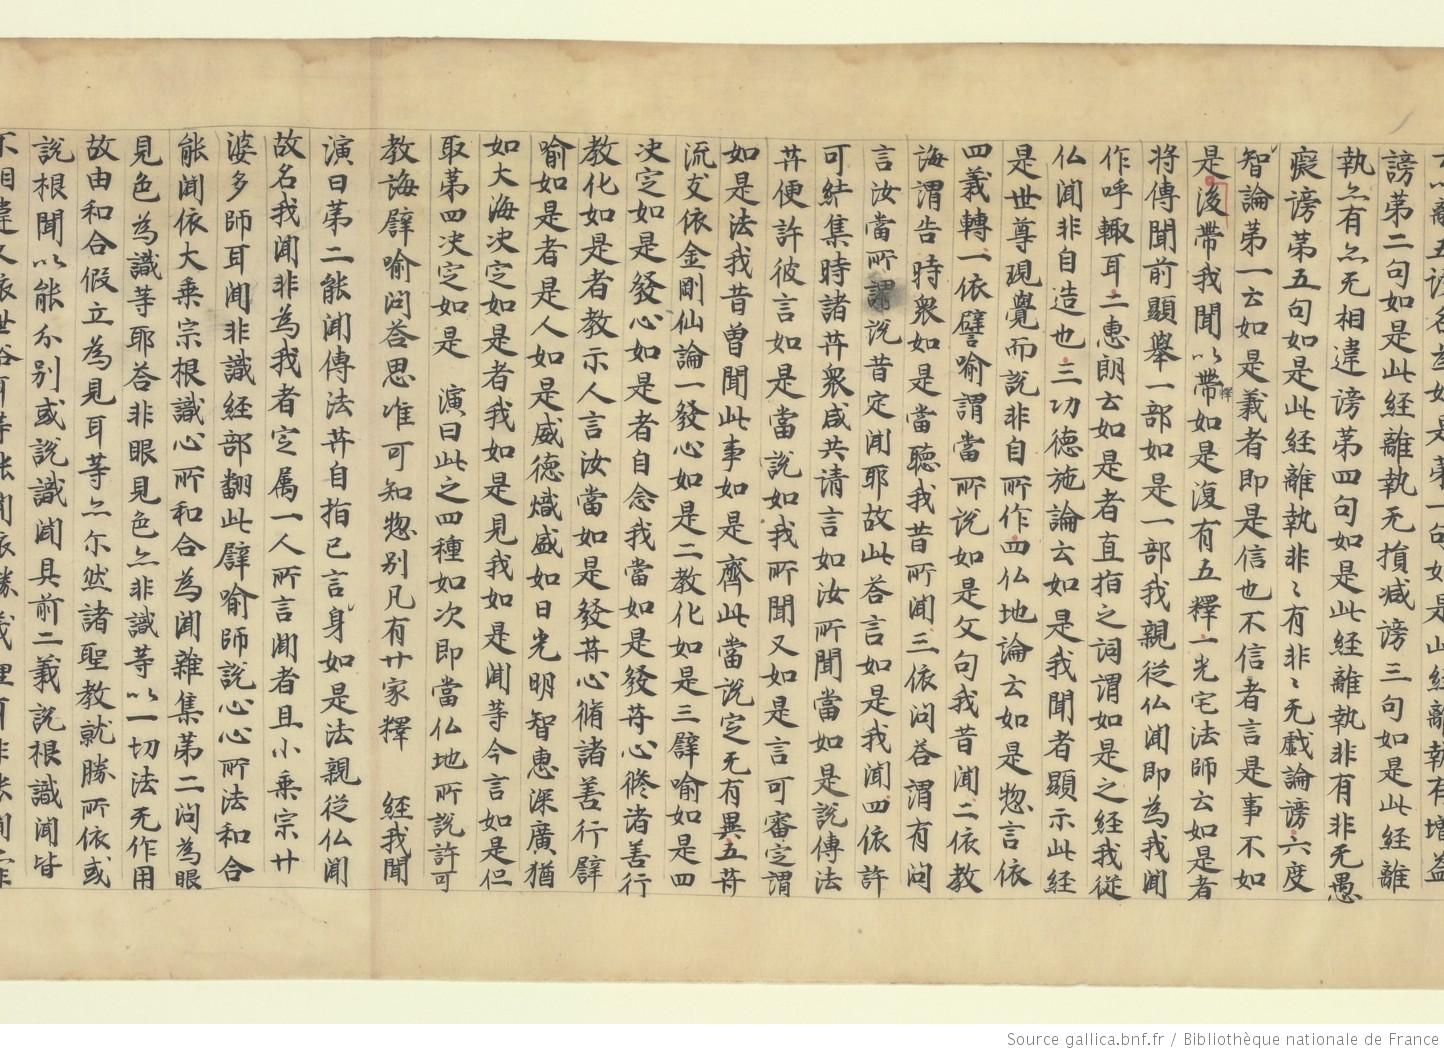 離五謗名為如是第一句如是此經離執有增益
謗第二句如是此經離執无損減謗三句如是此經離
執亦有亦无相違謗第四句如是此經離執非有非无愚
癡謗第五句如是此經離執非〻有非〻无戲論謗六度
智論第一云如是義者即是信也不信者言是事不如
是後帶我聞以帶釋如是復有五釋一光宅法師云如是者
將傳聞前顯舉一部如是一部我親從仏聞即為我聞
作呼輙耳二惠朗云如是者直指之詞謂如是之經我從
仏聞非自造也三功德施論云如是我聞者顯示此經
是世尊現覺而說非自所作四仏地論云如是惣言依
四義轉一依譬喻謂當所說如是文句我昔聞二依教
誨謂告時衆如是當聽我昔所聞三依问荅謂有问
言汝當所謂說昔定聞耶故此荅言如是我聞四依許
可結集時諸䒭衆咸共请言如汝所聞當如是說傳法
䒭便許彼言如是當說如我所聞又如是言可審定謂
如是法我昔曾聞此事如是齊此當說定无有異五䒭
流支依金剛仙論一發心如是二教化如是三譬喻如是四
决定如是發心如是者自念我當如是發䒭心修諸善行
教化如是者教示人言汝當如是發䒭心脩諸善行譬
喻如是者是人如是威德熾盛如日光明智惠深廣猶
如大海决定如是者我如是見我如是聞等今言如是但
取第四决定如是　演曰此之四種如次即當仏地所說許可
教誨譬喻问荅思准可知惣别凡有廿家釋　經我聞
演曰第二能聞傳法䒭自指已言身如是法親從仏聞
故名我聞非為我者定属一人所言聞者且小乘宗廿
婆多師耳聞非識經部翻此譬喻師說心心所法和合
能聞依大乘宗根識心所和合為聞雜集第二问為眼
見色為識等耶荅非眼見色亦非識等以一切法无作用
故由和合假立為見耳等亦尒然諸聖教就勝所依或
說根聞以能分别或說識聞具前二義說根識聞皆
不相違又依世俗可等能聞依勝義理可非能聞
Source gallica.bnf.fr / Bibliothèque nationale de France